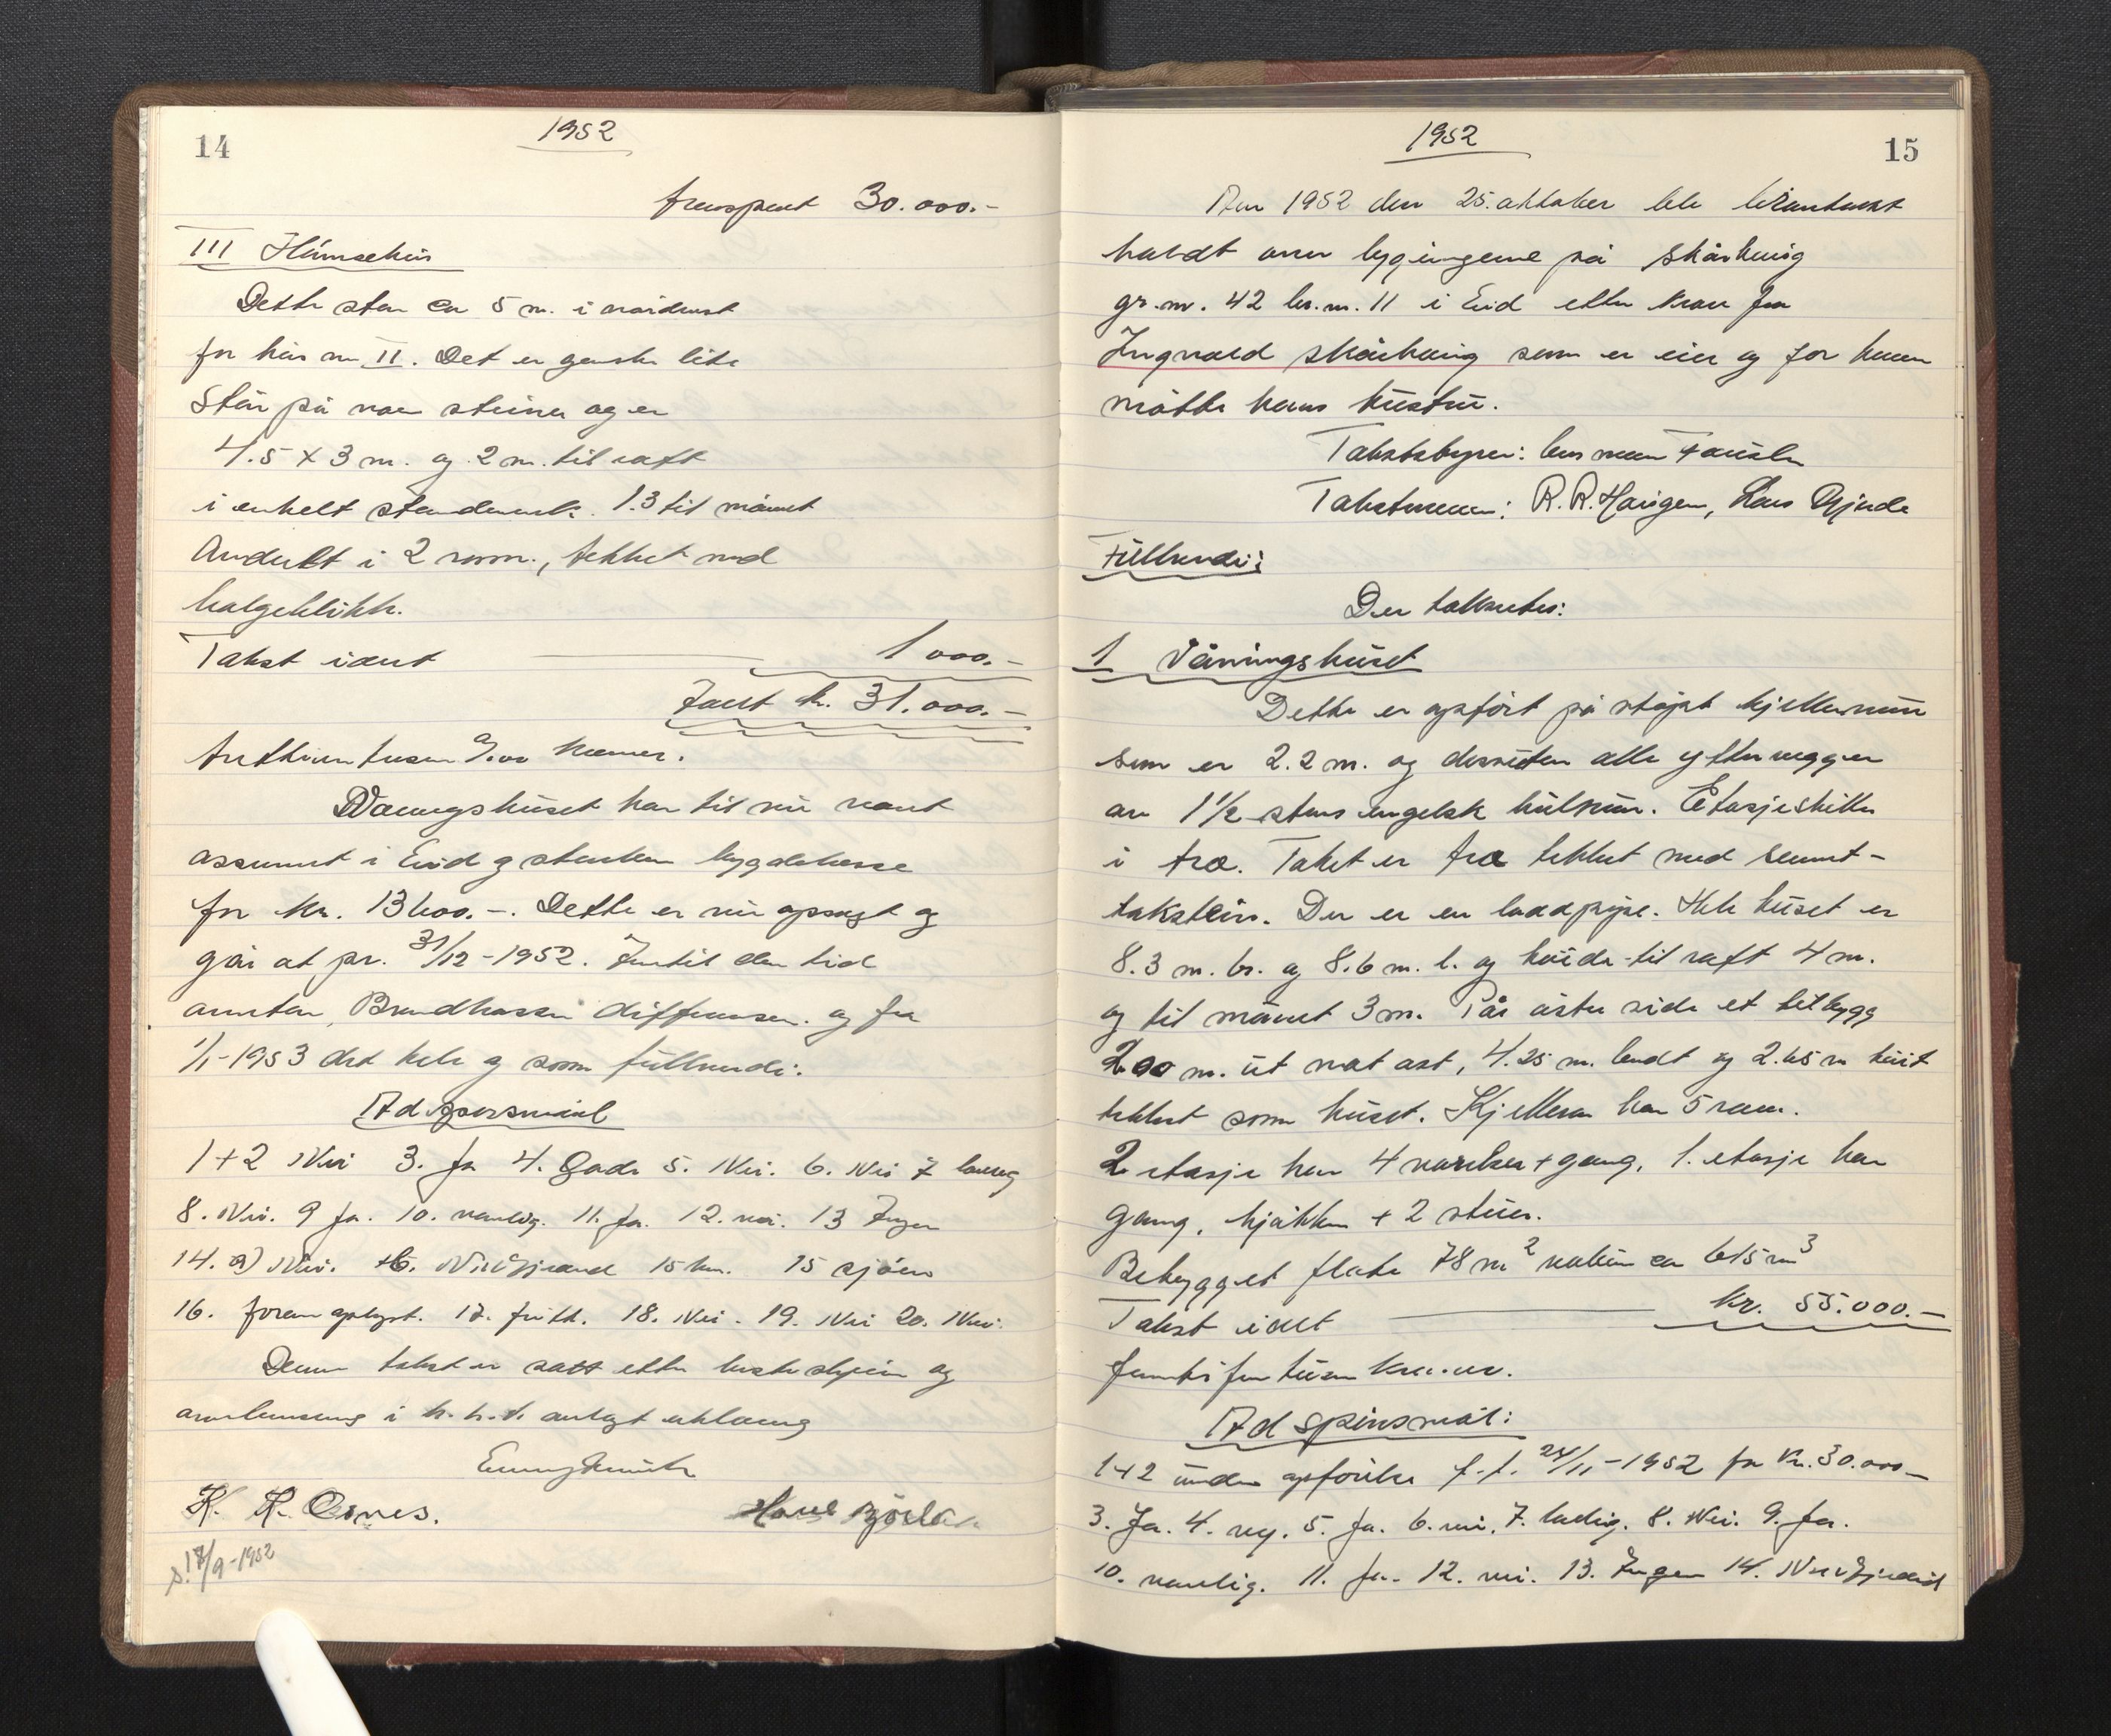 14
1952
transport 30.000.-
III Hönsehus
Dette står ca 5 m. i nordvest
for hus nr II. Det er ganske lite
Står på noen steiner og er
4.5 x 3 m. og 2 m. til raft
i enkelt standverk. 1.3 til mønet
Avdelt i 2 rom., tekket med
bølgeblikk.
Takst i alt 1000.-
I alt kr. 31.000.-
Trettientusen 0/00 kroner.
Våningshuset har til nu vært
assurert i Eid og bygdekasse
for kr. 13600.-. Dette er nu opsagt og
går ut pr. 31/12-1952. Inntil den tid
Brandkassen differansen og fra
1/1-1953 det hele og som fullverdi.
Ad spørsmål
1+2 Nei 3. Ja 4. Gode 5. Nei. 6. Nei 7 lovlig
8. Nei. 9 Ja. 10. vanlig. 11. Ja. 12. nei. 13 Ingen
14. a) Nei. b. Nordfjordeid 15 km. 15 sjøen
16. foran oplyst. 17. fritt. 18. Nei. 19. Nei 20. Nei.
Denne takst er satt etter beste skjønn og
overbevisning i h. h. t. avlagt erklæring
K. K. Osnes.
17/9-1952
1952
15
Den 1952 den 25. oktober ble branntakst
holdt over bygningene på Skårhaug
gr. nr. 42 br. nr. 11 i Eid etter krav fra
Ingvald Skårhaug som er eier og for ham
møtte hans hustru.
Takstbestyrer: lensmann
Takstmenn: R. R. Haugen, Lars Gjerde
Fullverdi:
Der takseres:
1 Våningshuset
Dette er opført på støpt kjellermur
som er 2.2 m. og dessuten alle yttervegger
av 1 1/2 stens engelsk hulmur. Etasjeskille
i tre. Taket er tre tekket med sement-
takstein. Der er en luddpipe. Hele huset er
8.3 m. br. og 8.6 m. l. og høide til raft 4 m.
og til mønet 3 m. På østre side et tilbygg
2.00 m. ut mot øst, 4.25 m. bredt og 2.65 m høit
tekket som huset. Kjelleren har 5 rum.
2 etasje har 4 værelser + gang, 1. etasje har
gang, kjøkken + 2 stuer.
Bebygget flate 78 m2 volum ca 615 m3
Takst i alt kr. 55.000.-
femtifemtusen kroner.
Ad spørsmål:
1+2 under opførelse f. f. 24/11-1952 for kr. 30.000.-
3. Ja. 4. ny. 5. Ja. 6. nei. 7. lovlig. 8. Nei. 9. Ja.
10. vanlig. 11. Ja. 12. nei. 13. Ingen 14. Nordfjordeid